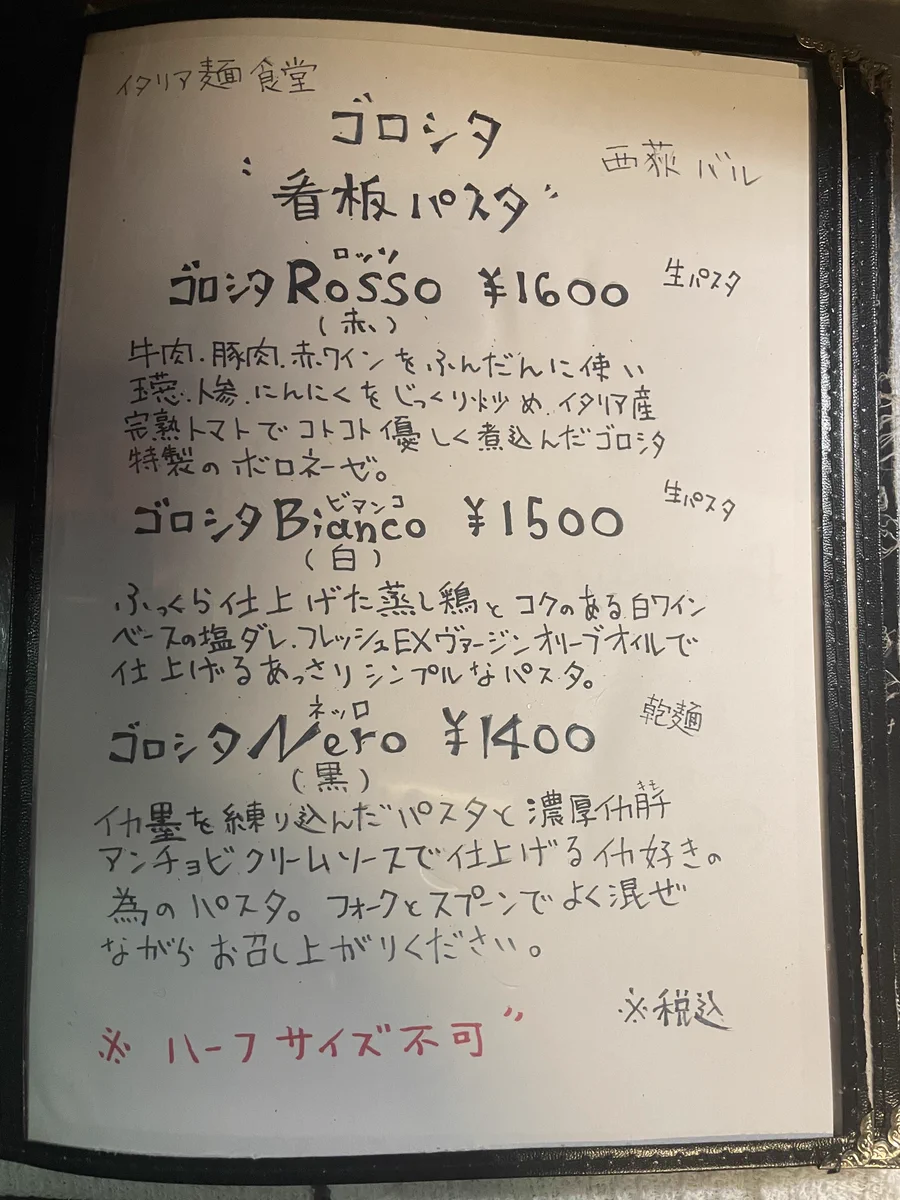 イタリア麺食堂
ゴロシタ
西荻バル
"看板パスタ"
ロッソ
ゴロシタ Rosso ¥1600 生パスタ
(赤)
牛肉.豚肉.赤ワインをふんだんに使い
玉葱.人参.にんにくをじっくり炒め.イタリア産
完熟トマトでコトコト優しく煮込んだゴロシタ
特製のボロネーゼ。
ビアンコ
ゴロシタ Bianco ¥1500 生パスタ
(白)
ふっくら仕上げた蒸し鶏とコクのある白ワイン
ベースの塩ダレ.フレッシュEXヴァージンオリーブオイルで
仕上げるあっさりシンプルなパスタ。
ネッロ
ゴロシタ Nero ¥1400 乾麺
(黒)
イカ墨を練り込んだパスタと濃厚イカ肝
キモ
アンチョビクリームソースで仕上げるイカ好きの
為のパスタ。フォークとスプーンでよく混ぜ
ながらお召し上がりください。
※税込
※ ハーフサイズ不可"